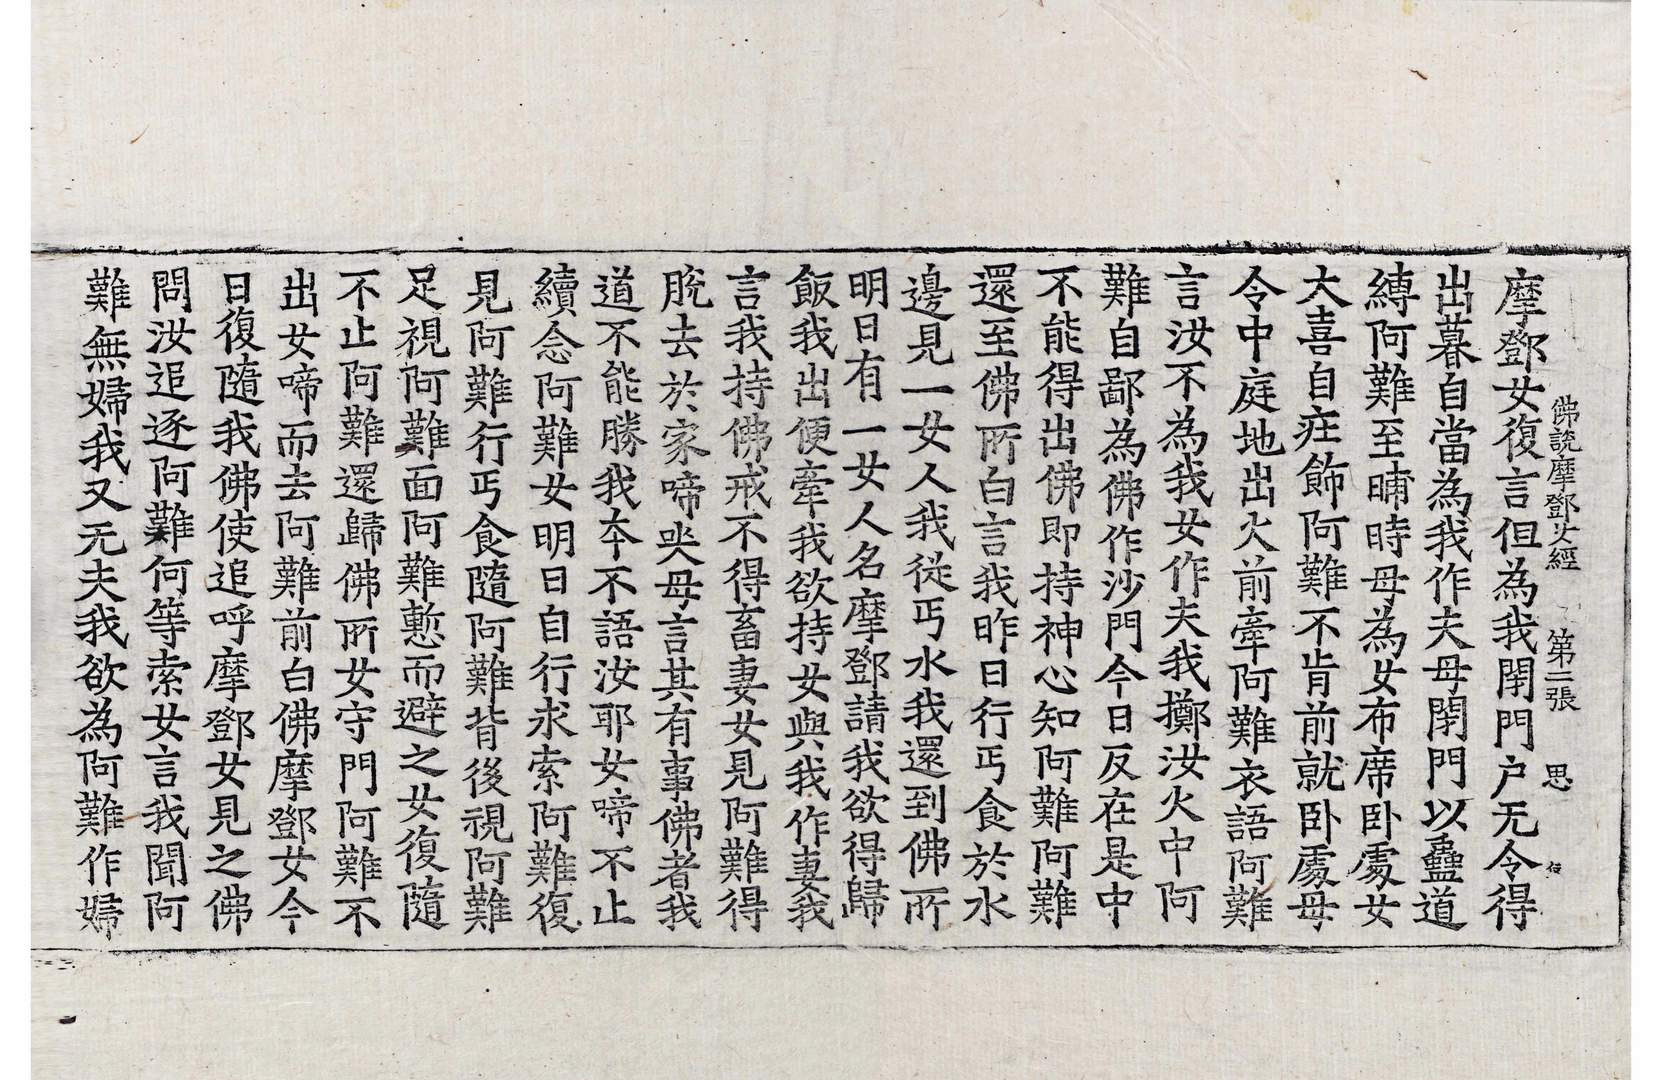 佛說摩鄧女經 第二張 思
摩鄧女復言但為我閉門户无令得
出暮自當為我作夫母閉門以蠱道
縛阿難至晡時母為女布席卧處女
大喜自庄飾阿難不肯前就卧處母
令中庭地出火前牽阿難衣語阿難
言汝不為我女作夫我擲汝火中阿
難自鄙為佛作沙門今日反在是中
不能得出佛即持神心知阿難阿難
還至佛所白言我昨日行丐食於水
邊見一女人我從丐水我還到佛所
明日有一女人名摩鄧請我欲得歸
飯我出便牽我欲持女與我作妻我
言我持佛戒不得畜妻女見阿難得
脫去於家啼哭母言其有事佛者我
道不能勝我夲不語汝耶女啼不止
續念阿難女明日自行求索阿難復
見阿難行丐食隨阿難背後視阿難
足視阿難面阿難慙而避之女復隨
不止阿難還歸佛所女守門阿難不
出女啼而去阿難前白佛摩鄧女今
日復隨我佛使追呼摩鄧女見之佛
問汝追逐阿難何等索女言我聞阿
難無婦我又无夫我欲為阿難作婦